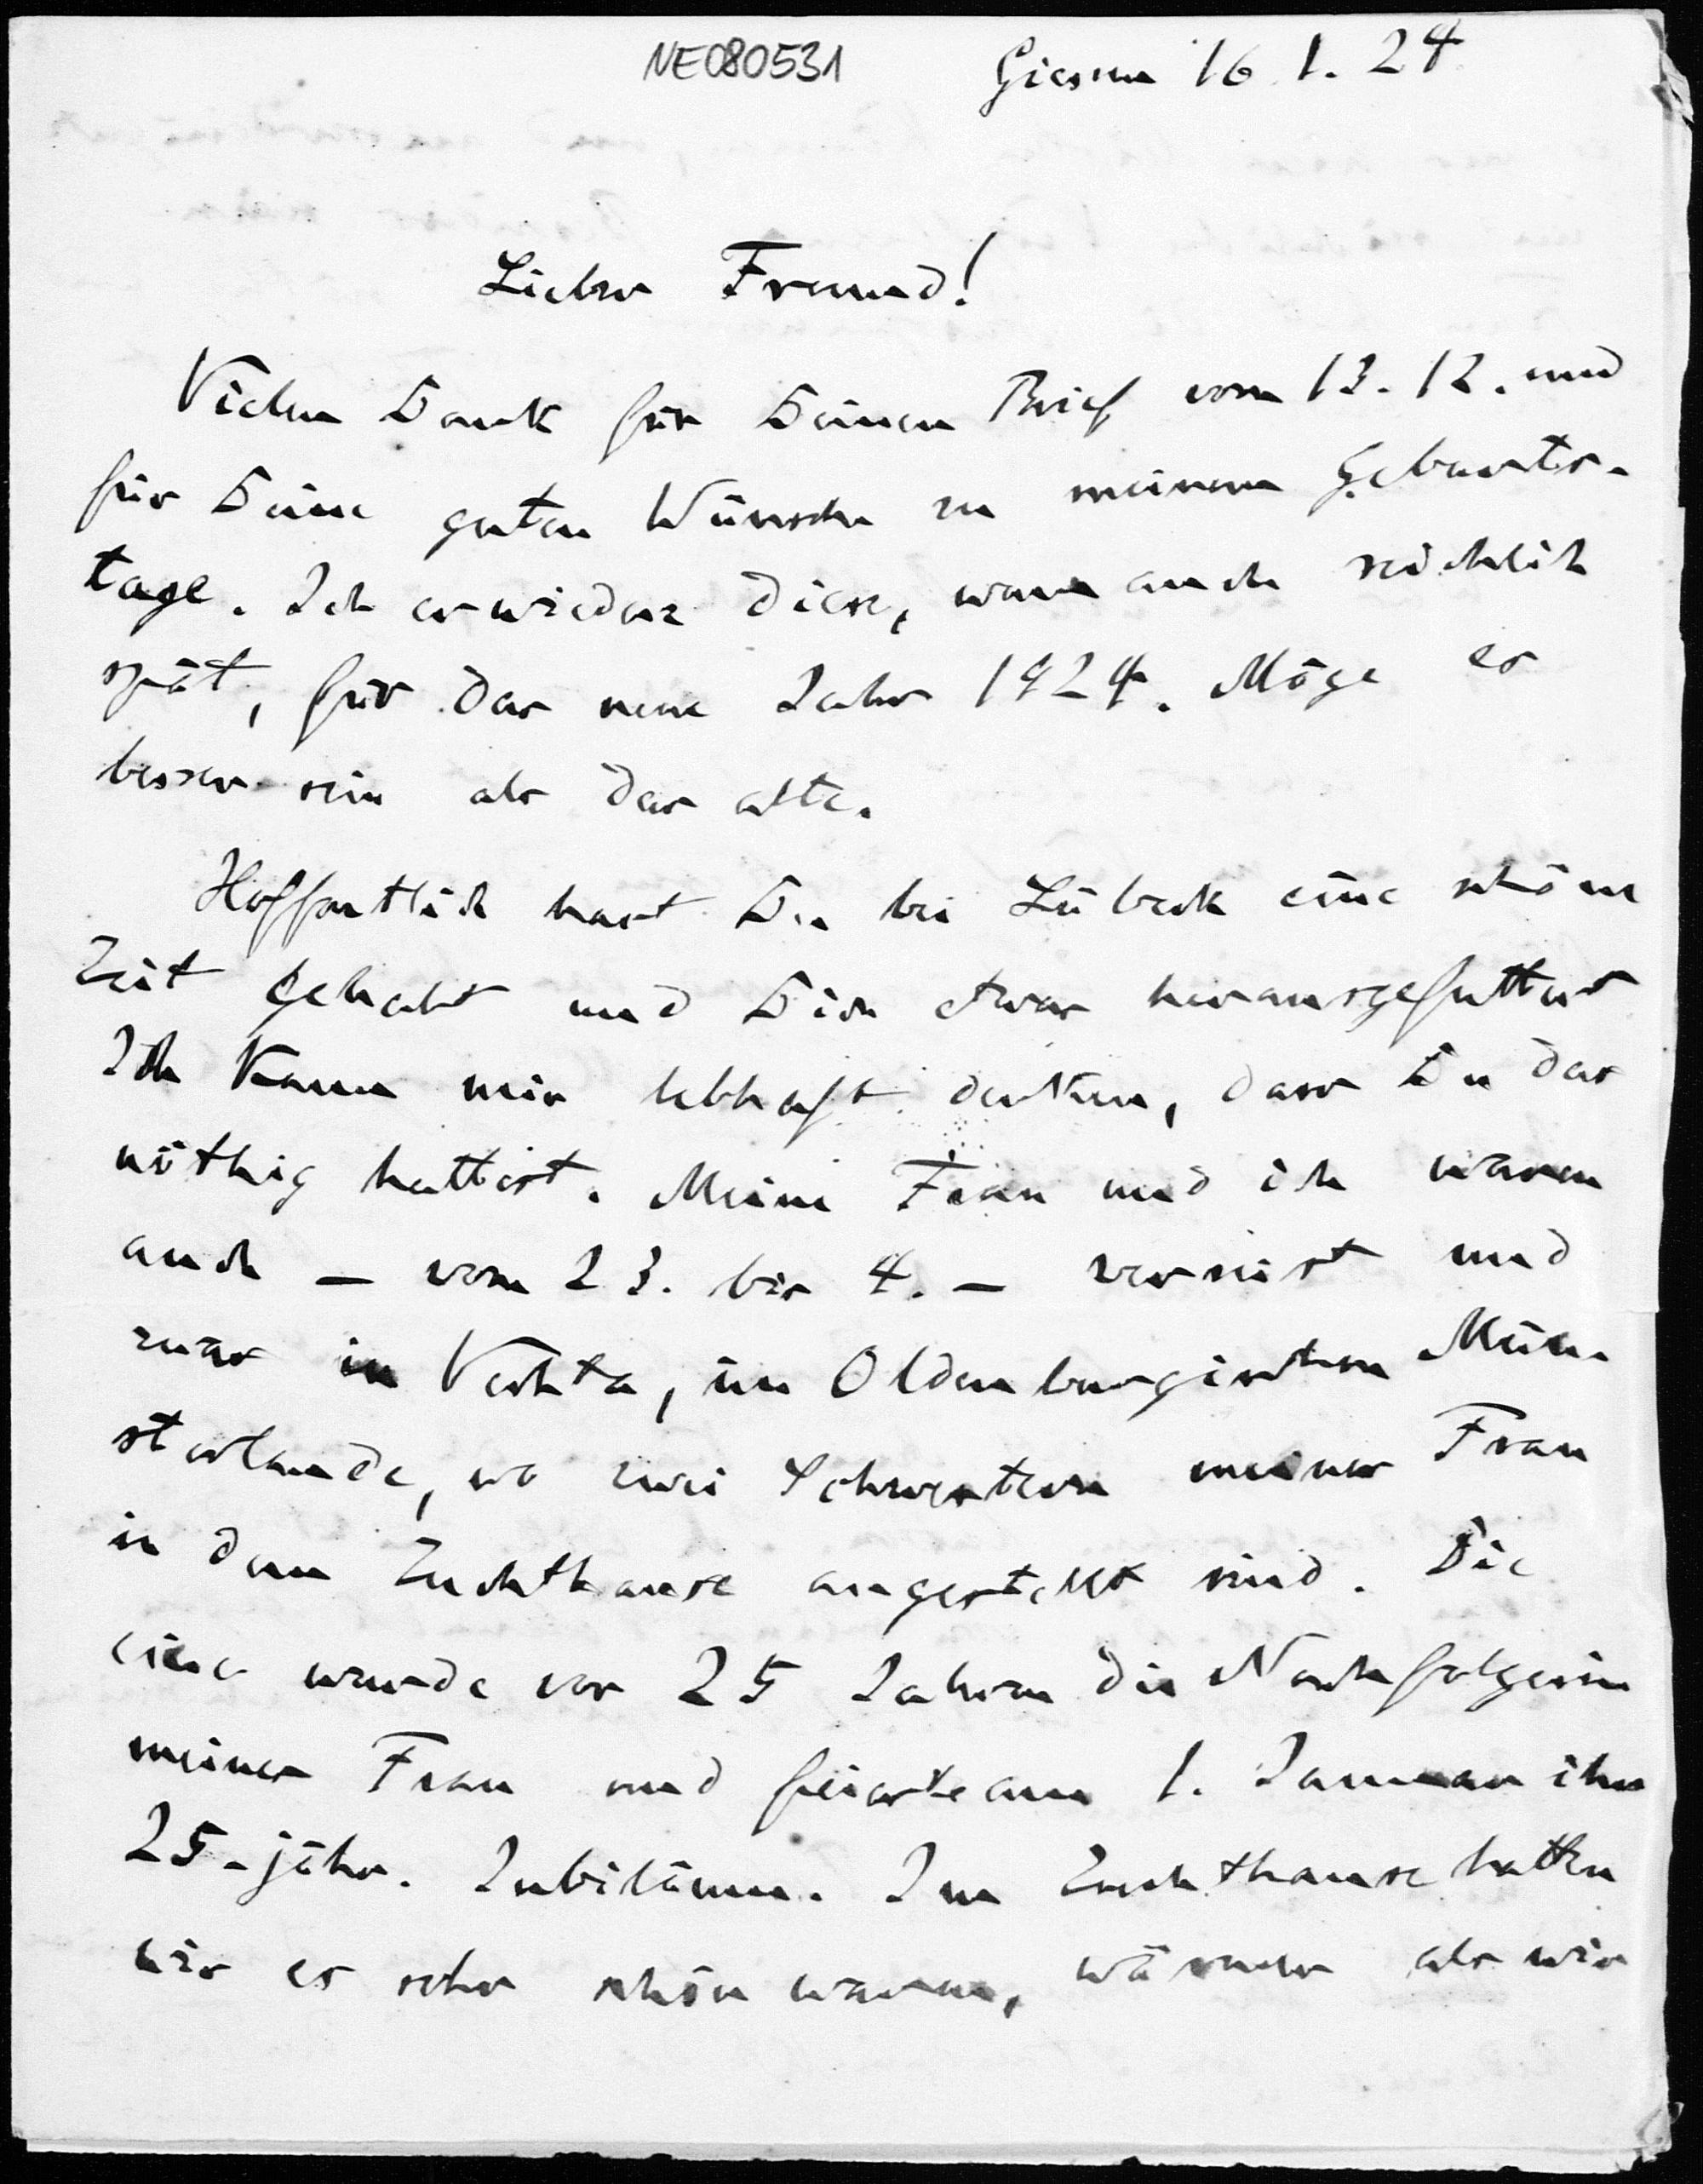 NE080531
Giessen 16. 1. 24
Lieber Freund!
Vielen Dank für Deinen Brief vom 13. 12. und
für Deine guten Wünsche zu meinem Geburts-
tage. Ich erwiedere diese, wenn auch reichlich
spät, für das neue Jahr 1924. Möge es
besser sein als das alte.
Hoffentlich hast Du bei Lübeck eine schöne
Zeit gehabt und Dich etwas herausgefuttert
Ich kann mir lebhaft denken, dass Du das
nöthig hattest. Meine Frau und ich waren
auch – vom 23. bis 4. – verreist und
zwar in Vechta, im Oldenburgischen Mün-
sterlande, wo zwei Schwestern meiner Frau
in dem Zuchthause angestellt sind. Die
eine wurde vor 25 Jahren die Nachfolgerin
meiner Frau und feierte am 1. Januar ihr
25-jähr. Jubiläum. Im Zuchthause hatten
wir es sehr schön warm, wärmer als wir